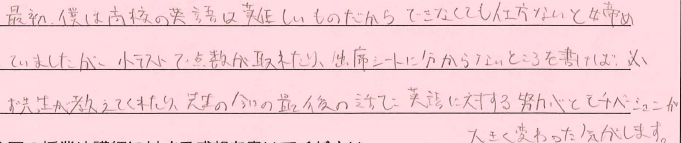 最初、僕は高校の英語は難しいものだからできなくても仕方ないと諦め
ていましたが、小テストで点数が取れたり、出席シートに分からないところを書けば、必
ず先生が教えてくれたり、先生の の最後の話で英語に対する努力とモチベーションが
大きく変わった気がします。